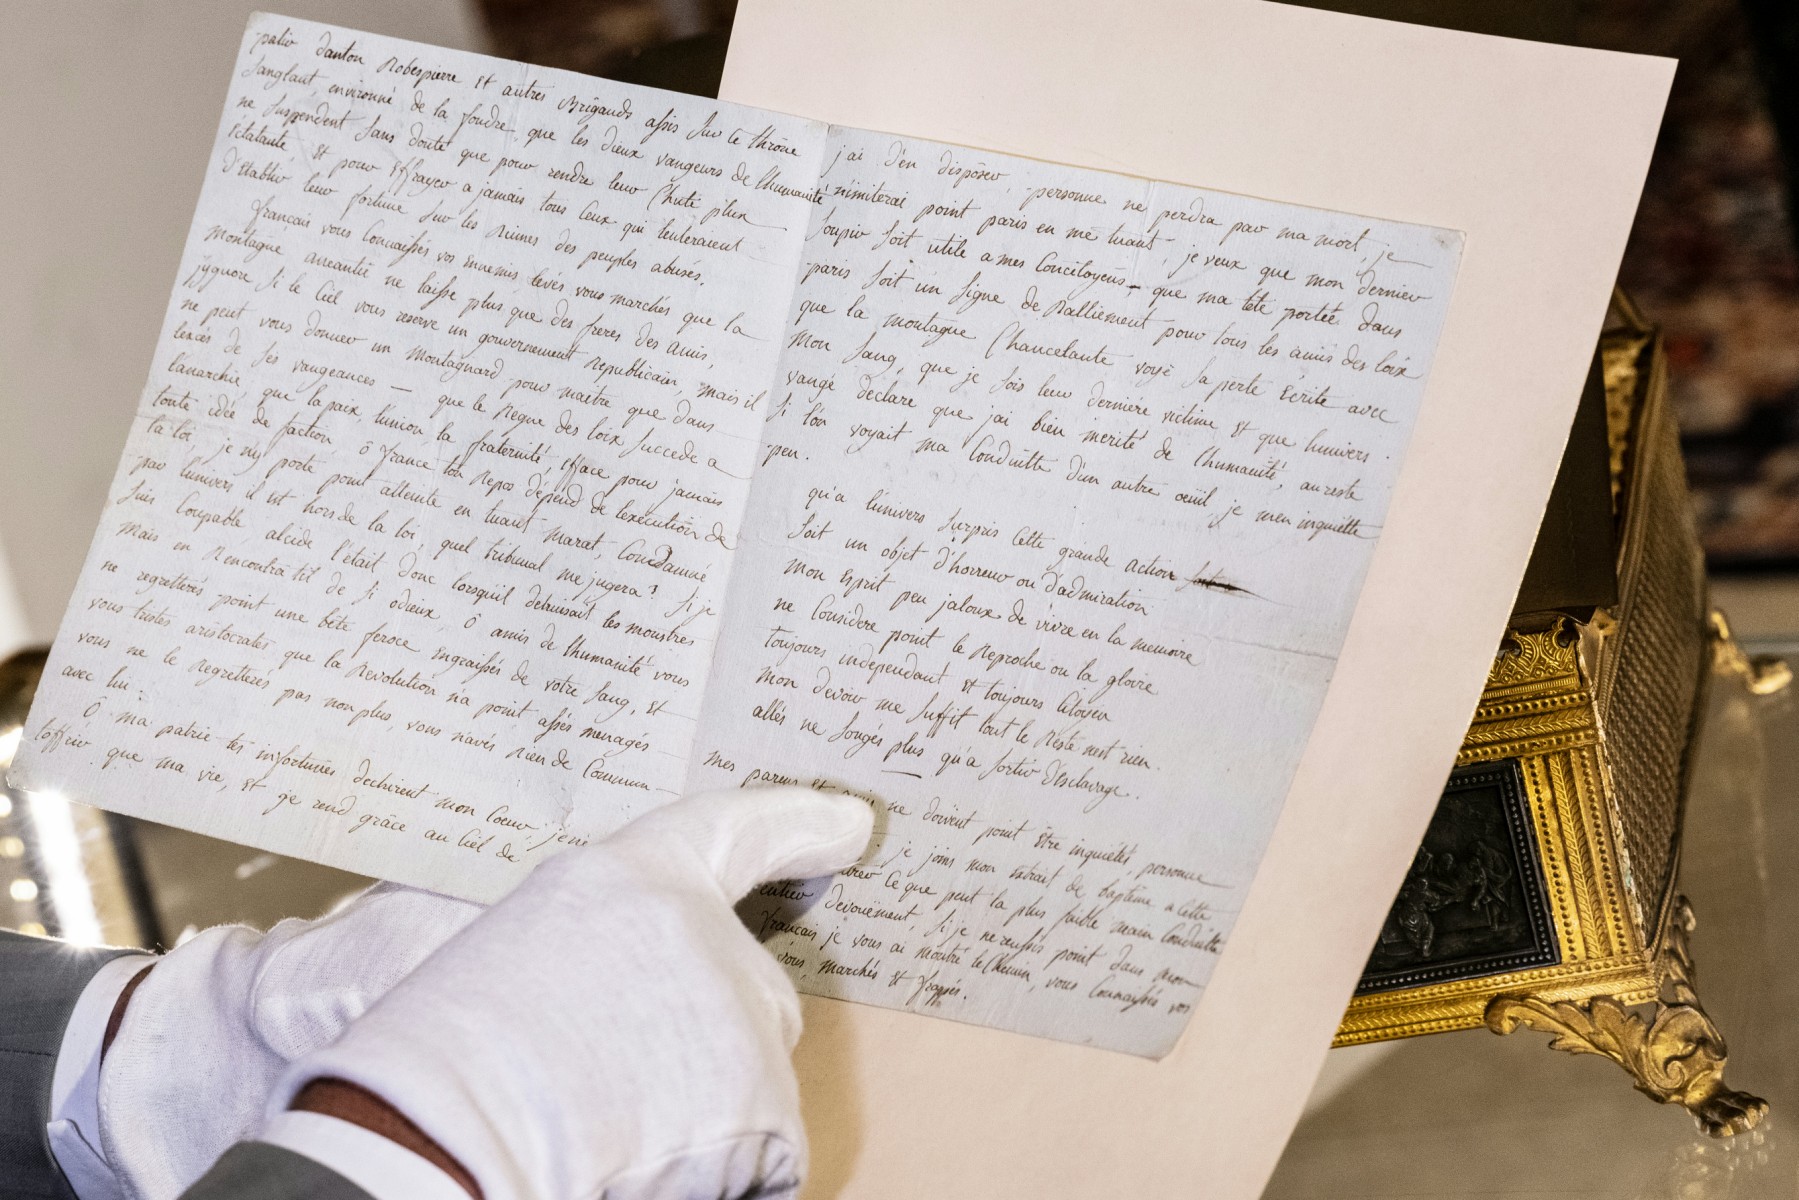 -patriv danton Robespierre et autres Brigands assis sur le thrône
sanglant, environné de la foudre, que les dieux vangeurs de l'humanité
ne suspendent sans doute que pour rendre leur Chute plus
Éclatante, et pour Effrayer a jamais tous Ceux qui tenteraient
D'etablir leur fortune sur les Ruines des peuples abusés.
français vous Connaissés vos Ennemis, levés vous marchés que la
Montagne aneantie ne laisse plus que des freres des amis,
jygnore si le Ciel vous reserve un gouvernement Republicain, mais il
ne peut vous donner un Montagnard pour maitre que dans
l'excès de ses vangeances — que le Regne des loix succede a
l'anarchie, que la paix, l'union, la fraternité, efface pour jamais
toute idée de faction, ô france ton Repos dépend de l'execution de
la loi, je n'y porte point atteinte en tuant Marat, Condamné
par l'univers il est hors de la loi, quel tribunal me jugera? Si je
suis Coupable, alcide l'était donc lorsqu'il detruisait les monstres
Mais en Rencontra til de si odieux, ô amis de l'humanité vous
ne regretterés point une bête feroce engraissés de votre sang, et
vous tristes aristocrates que la Revolution n'a point assés menagés
vous ne le Regretterés pas non plus, vous n'avés Rien de Commun
avec lui.
Ô ma patrie tes infortunes dechirent mon Coeur, je ne
t'offrir que ma vie, et je rend grâce au Ciel de
j'ai d'en disposer, personne ne perdra par ma mort, je
n'imiterai point paris en me tuant, je veux que mon dernier
soupir soit utile a mes Concitoyens, que ma tête portée dans
paris soit un signe de Ralliement pour tous les amis des loix
que la montagne Chancelante voye sa perte Ecrite avec
Mon sang, que je sois leur derniere victime et que l'univers
vangé déclare que j'ai bien merité de l'humanité, au reste
si l'on voyait ma Conduitte d'un autre oeüil, je m'en inquiette
peu.
qu'a l'univers surpris Cette grande action
soit un objet d'horreur ou d'admiration
mon Esprit peu jaloux de vivre en la memoire
ne Considere point le Reproche ou la gloire
toujours independant et toujours Citoyen
Mon devoir me suffit tout le Reste n'est rien.
allés ne songés plus qu'a sortir d'Esclavage.
Mes parens et amis ne doivent point être inquiétés, personne
je joins mon extrait de baptême a Cette
ce que peut la plus faible main Conduitte
entier devouëment, si je ne reussis point dans mon
français je vous ai montré le Chemin, vous Connaissés vos
vous, marchés et frappés.